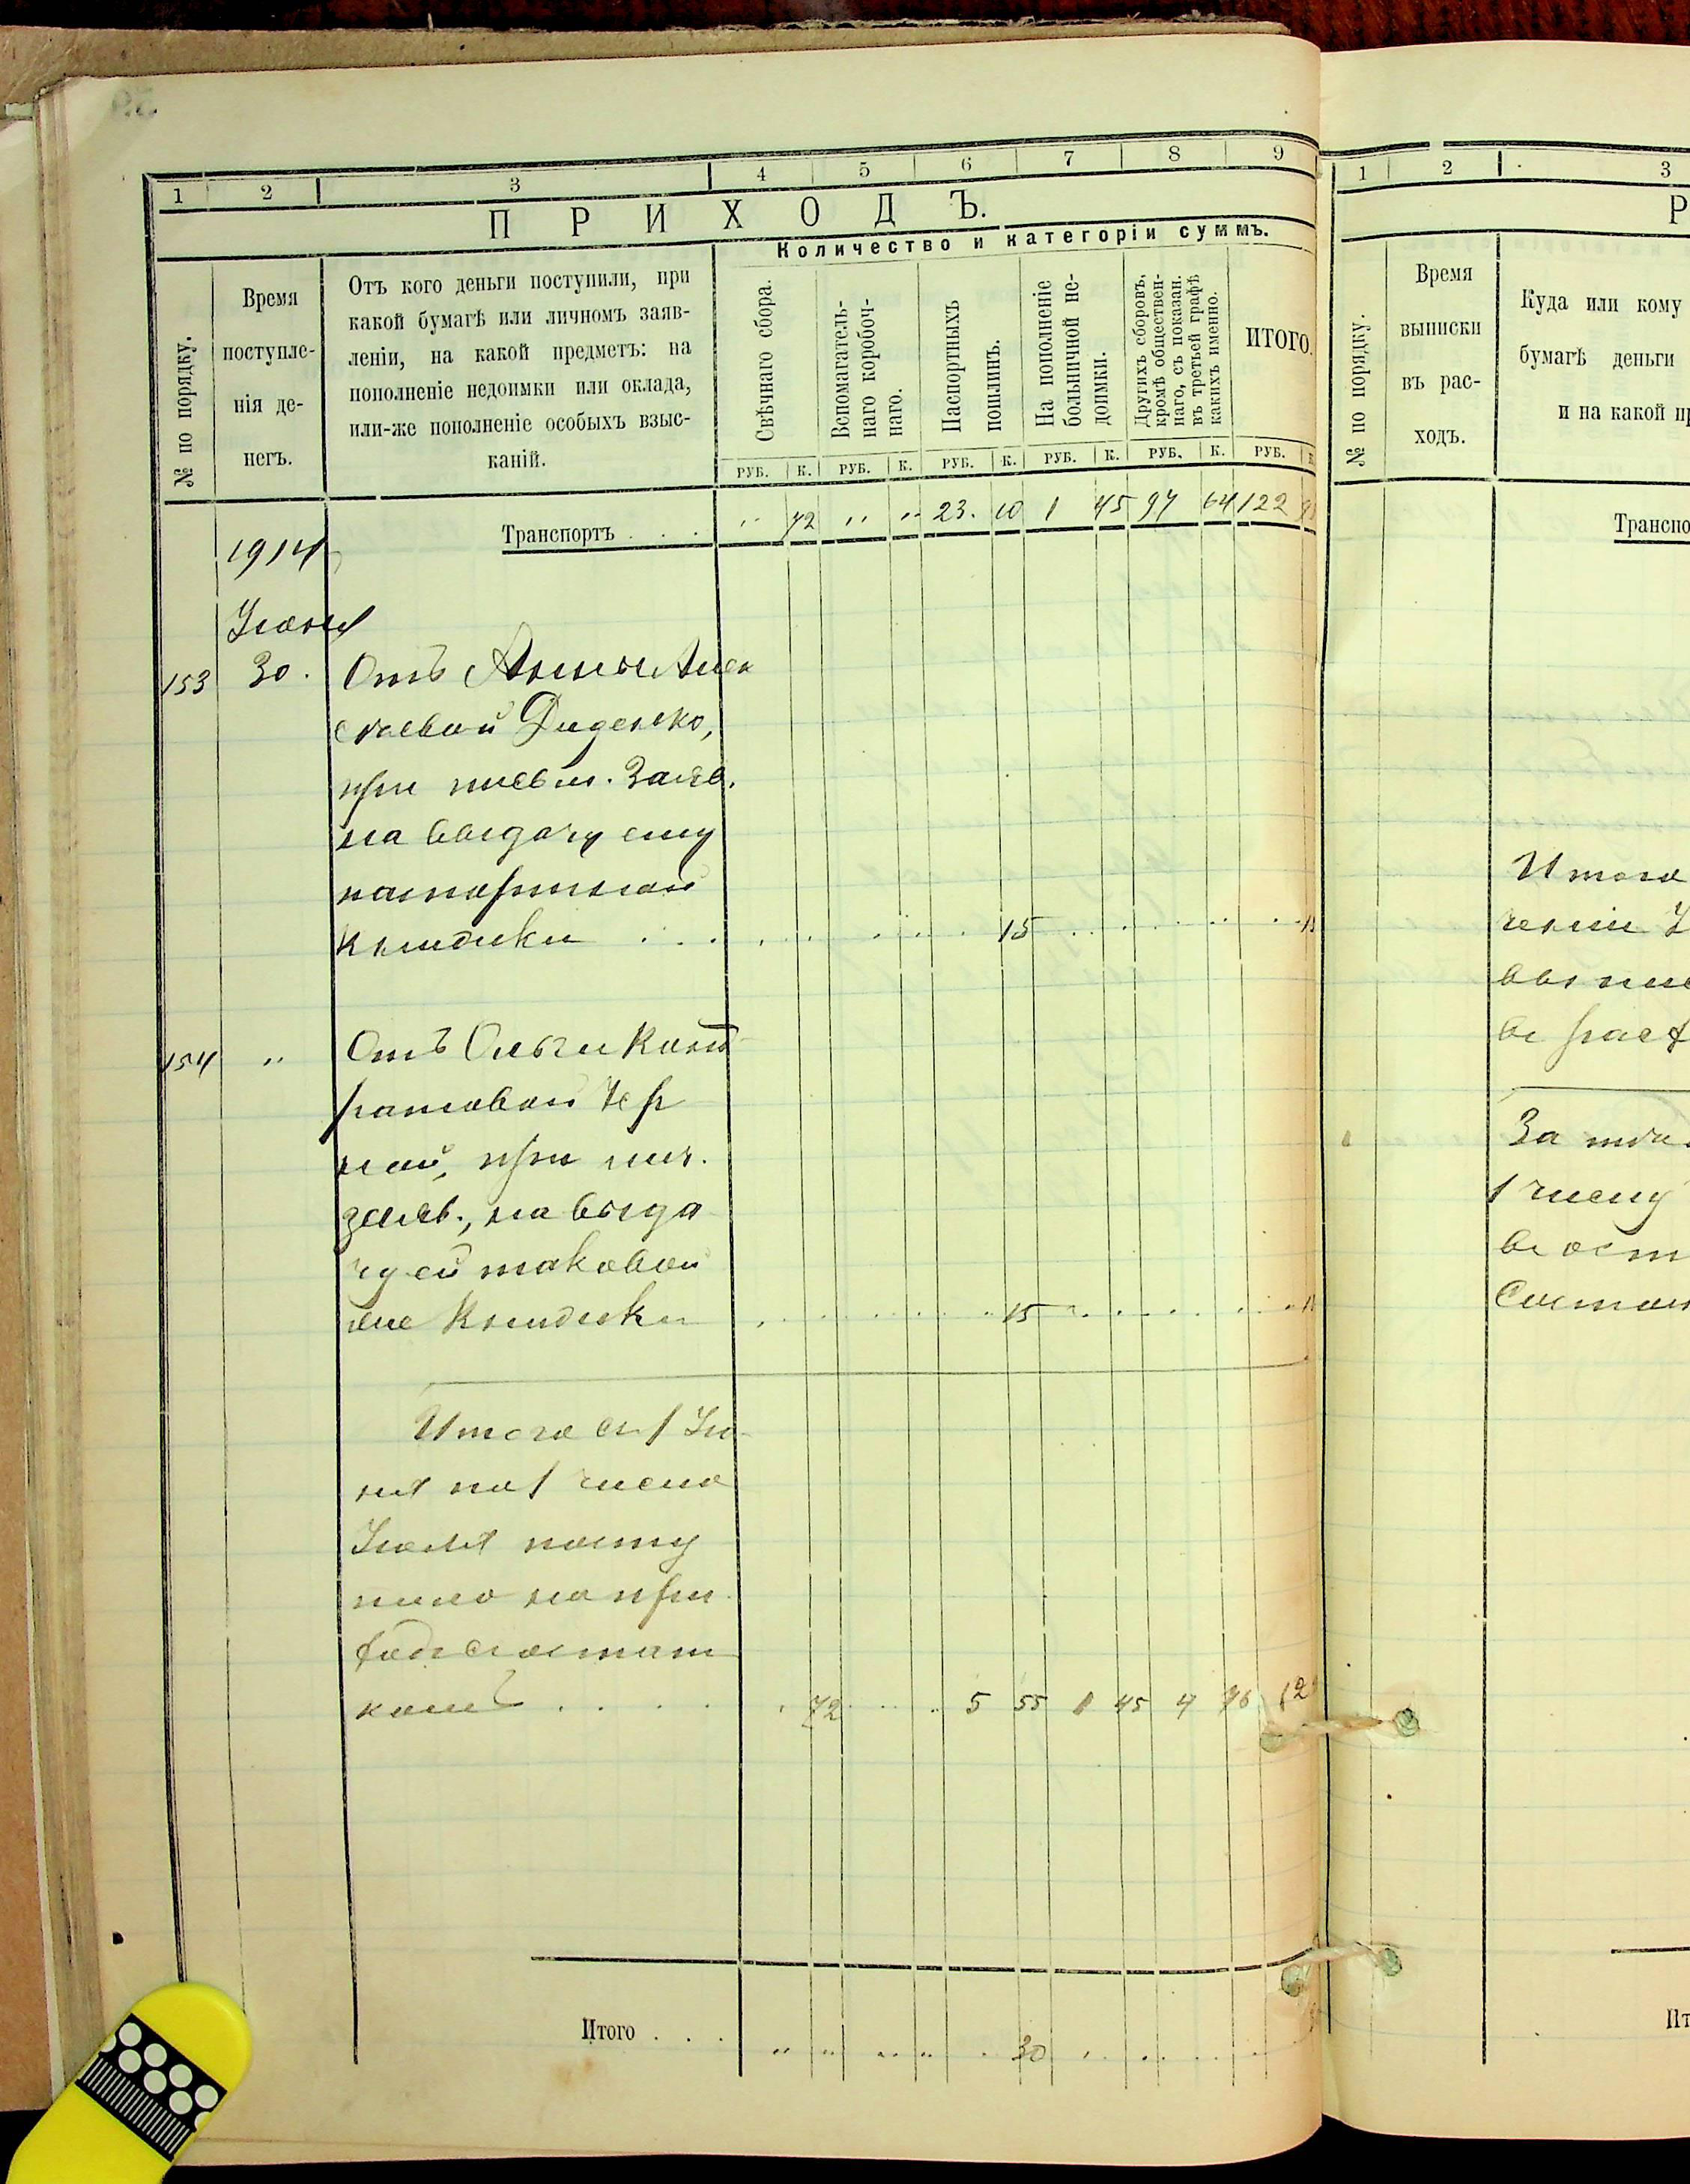 1 2 3 4 5 6 7 8 9
ПРИХОДЪ.
Количество и категоріи суммъ.
№ по порядку.
Время
поступле-
нія де-
негъ.
Отъ кого деньги поступили, при
какой бумагѣ или личномъ заяв-
леніи, на какой предметъ: на
пополненіе недоимки или оклада,
или-же пополненіе особыхъ взыс-
каній.
Свѣчнаго сбора.
Вспомагатель-
наго коробоч-
наго.
Паспортныхъ
пошлинъ.
На пополненіе
больничной не-
доимки.
Другихъ сборовъ,
кромѣ обществен-
наго, съ показан.
въ третьей графѣ
какихъ именно.
ИТОГО.
РУБ. К. РУБ. К. РУБ. К. РУБ. К. РУБ. К. РУБ.
Транспортъ . . . „ 72 „ „ 23. 10 1 45 97 64 122
1914
Іюня
153 30. Отъ Анны Алек
сѣевой Диденко,
при письм. Заяв.
на выдачу ему
паспортной
книжки . . . 15
154 „ Отъ Ольги Конд
ратовой Чер
ной, при лич.
заяв., на выда
чу ей таковой
же книжки 15
Итого съ 1 Ію-
ня по 1 число
Іюля посту
пило на при
ходъ съ остат
комъ . . . . 72 5 55 1 45 4 96 12
Итого . . . „ „ „ „ 30
1 2 3
Р
№ по порядку.
Время
выписки
въ рас-
ходъ.
Куда или кому
бумагѣ деньги
и на какой пр
Транспо
Итого
ченіи
выпис
въ расх
За тѣм
1 числу
въ ост
Состои
Ит